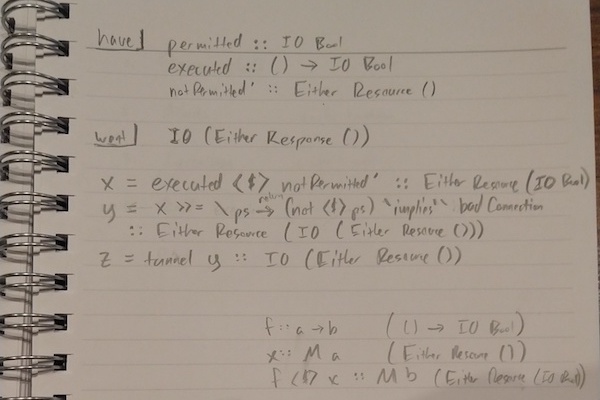 have] permitted :: IO Bool
executed :: () → IO Bool
notPermitted' :: Either Resource ()
want] IO (Either Response ())
x = executed <$> notPermitted' :: Either Resource (IO Bool)
y = x >>= \ps → return (not <$> ps) `implies'` badConnection
:: Either Resource (IO (Either Resource ()))
z = tunnel y :: IO (Either Resource ())
f :: a → b (() → IO Bool)
x :: M a (Either Resource ())
f <$> x :: M b (Either Resource (IO Bool))